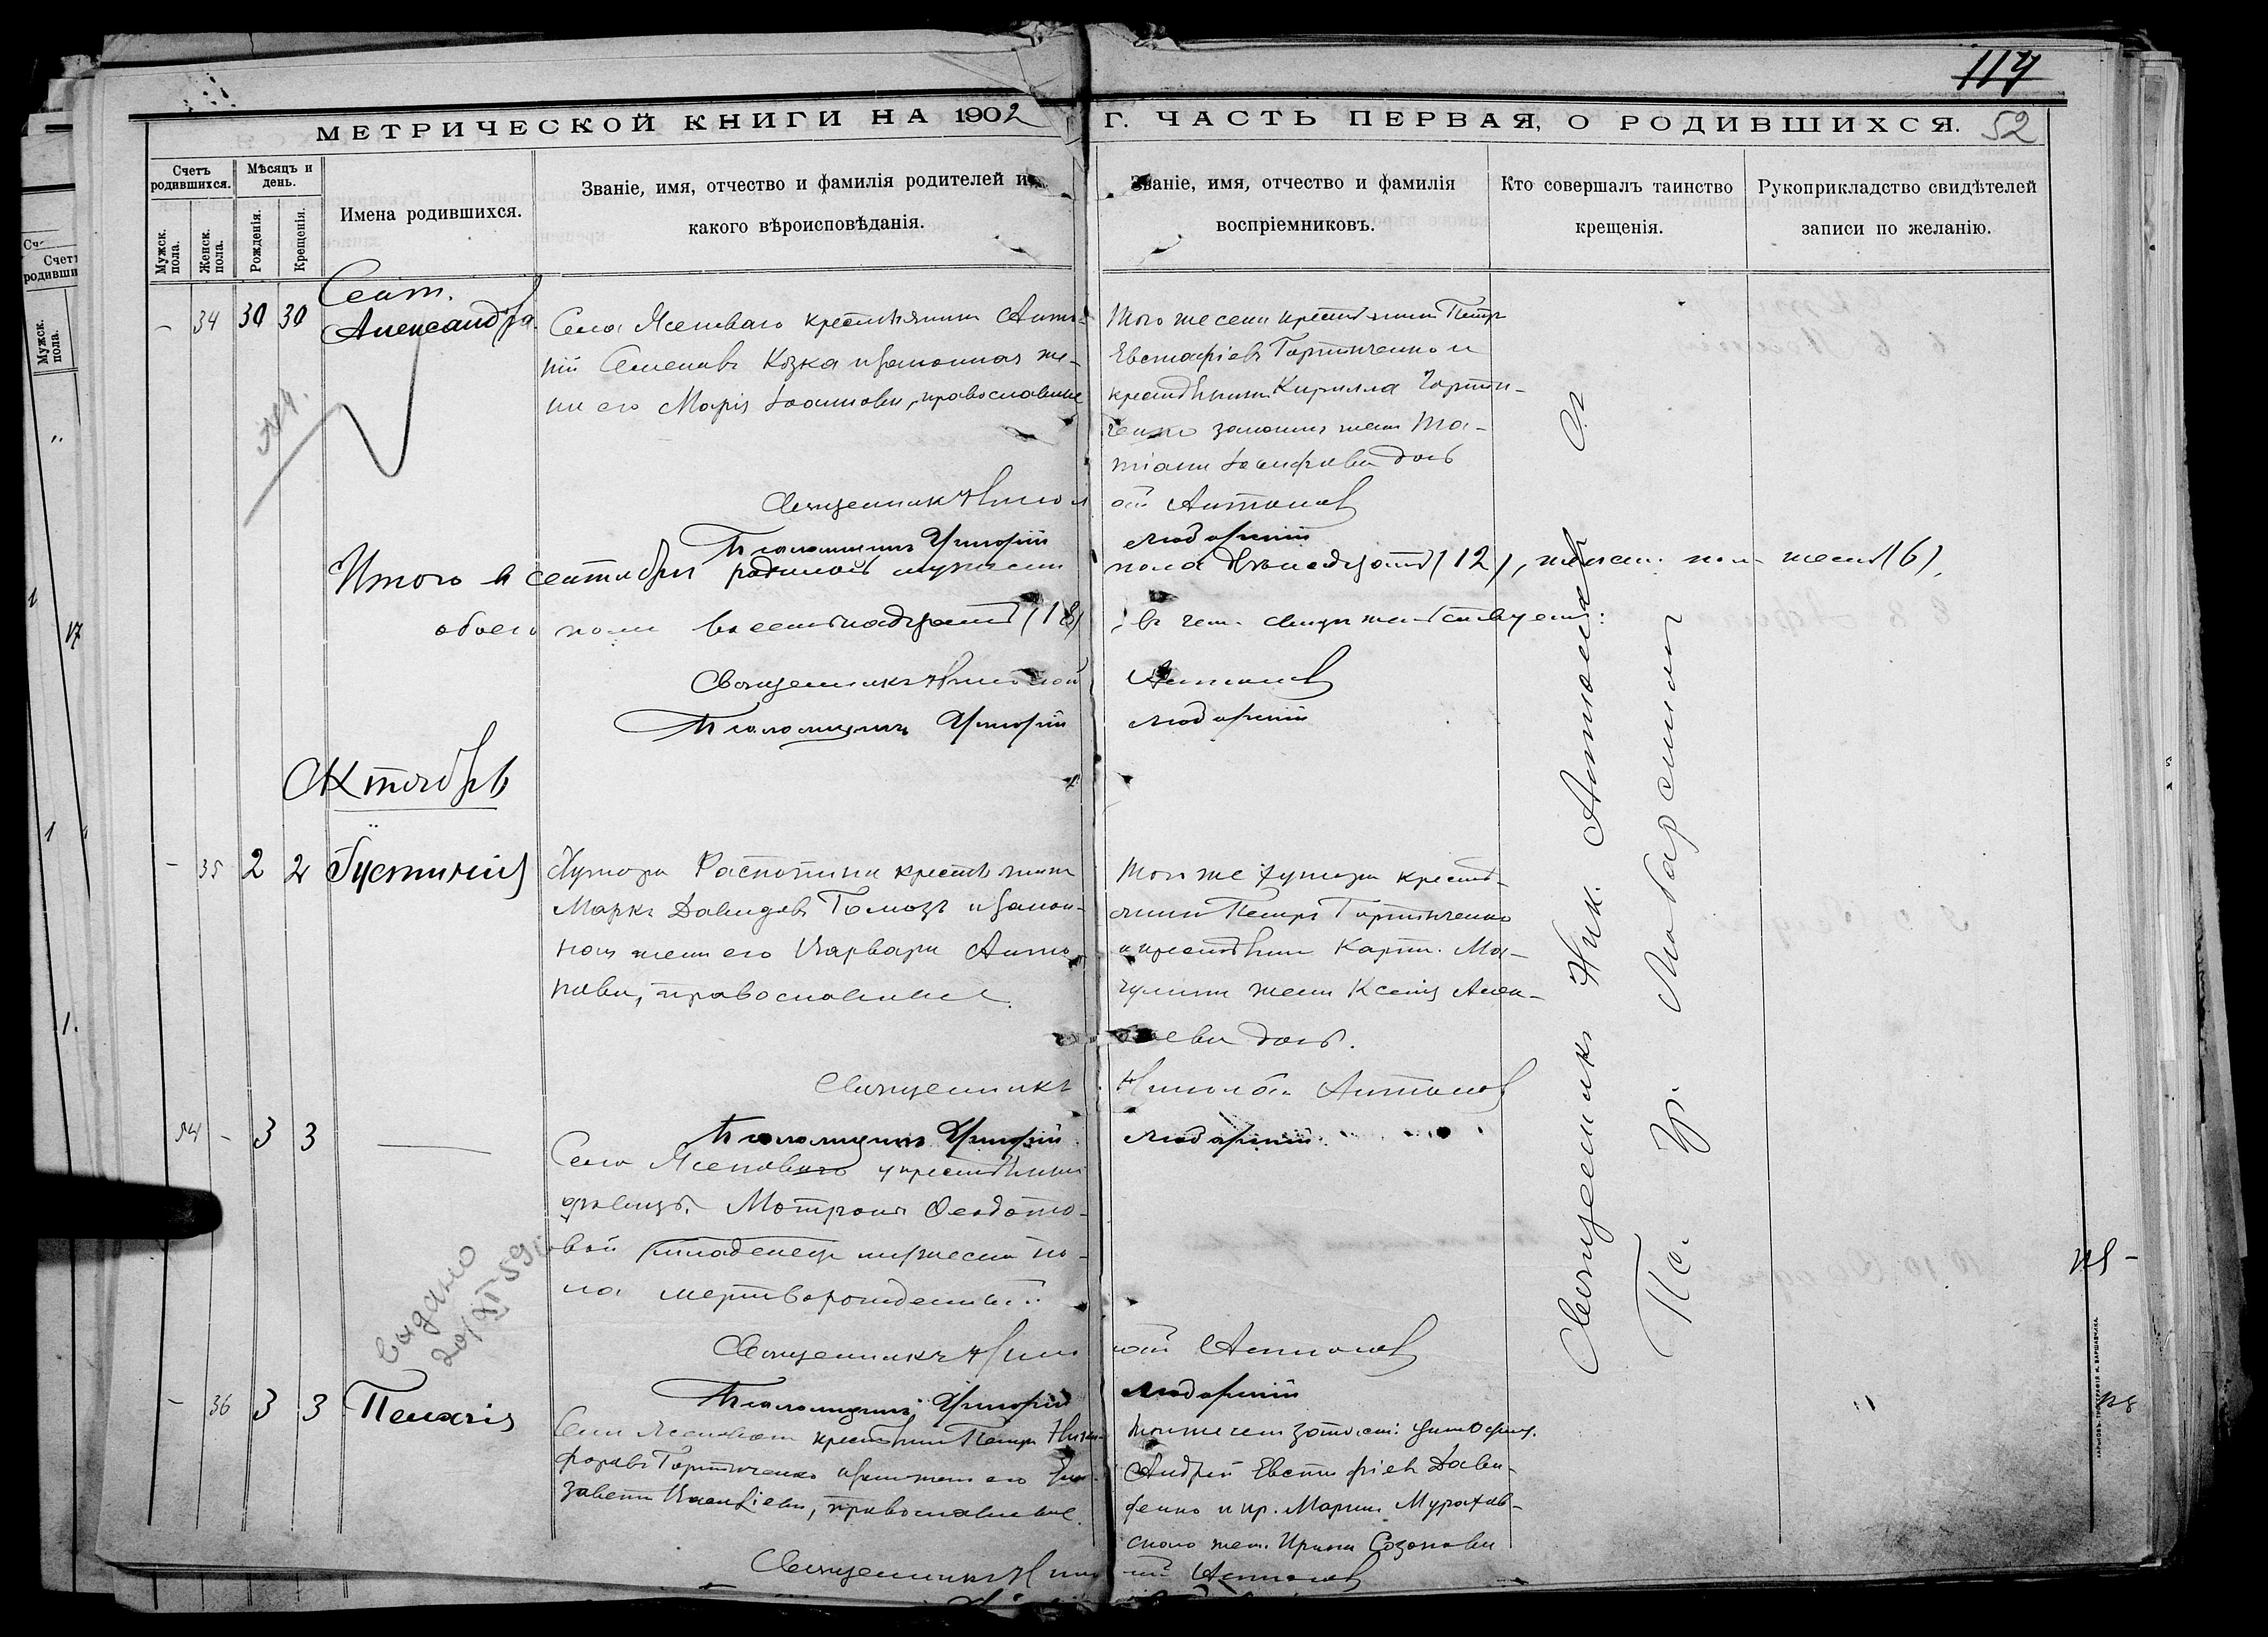 117
МЕТРИЧЕСКОЙ КНИГИ НА 1902 Г. ЧАСТЬ ПЕРВАЯ, О РОДИВШИХСЯ. 52
Счетъ родившихся.
Мѣсяцъ и день.
Мужск. пола.
Женск. пола.
Рожденія.
Крещенія.
Имена родившихся.
Званіе, имя, отчество и фамилія родителей и
какого вѣроисповѣданія.
Званіе, имя, отчество и фамилія
воспріемниковъ.
Кто совершалъ таинство
крещенія.
Рукоприкладство свидѣтелей
записи по желанію.
Сент.
- 34 30 30 Александра.
Села Ясеноваго крестьянинъ Анто-
ній Семеновъ Козка и законная же-
на его Марія Іоаннова, православные
Того же села крестьянинъ Петръ
Евстафіевъ Гортинченко и
крестьянина Кирилла Гортин-
ченко законная жена Та-
тіана Іосифова дочь
Священникъ Николай Антоновъ
Псаломщикъ Григорій
Итого в сентябрѣ родилось мужеска пола двѣнадцать (12), женск. пола шесть (6),
обоего пола восемнадцать (18) въ чемъ свидѣтельствуемъ:
Священникъ Николай Антоновъ
Псаломщикъ Григорій
Октябрь
- 35 2 2 Іустинія
Хутора Распопина крестьянинъ
Маркъ Давидовъ Гомозъ и закон-
ная жена его Варвара Анто-
нова, православные
Того же хутора крестья-
нинъ Петръ Гортинченко
и крестьянина Карп. Ма-
жена Ксенія Алек-
сѣева дочь.
Священникъ Николай Антоновъ
Псаломщикъ Григорій
54 - 3 3 —
Села Ясеноваго у крестьянки
дѣвицы Мотроны Феодото-
вой младенецъ мужеска по-
ла мертворожденный
Священникъ Николай Антоновъ
Псаломщикъ Григорій
Выдано
20/XI 59
- 36 3 3 Пелагія
Села Ясеноваго крестьянинъ Петръ Ники-
форовъ Гортинченко и зак. жена его Ели-
завета Василіева, православные.
Андрей Евстафіевъ Дави-
денко и кр. Мартина Мурахов-
скаго жен. Ирина Созонова
Священникъ Николай Антоновъ
Священникъ Ник. Антоновъ
Пс. Гр.